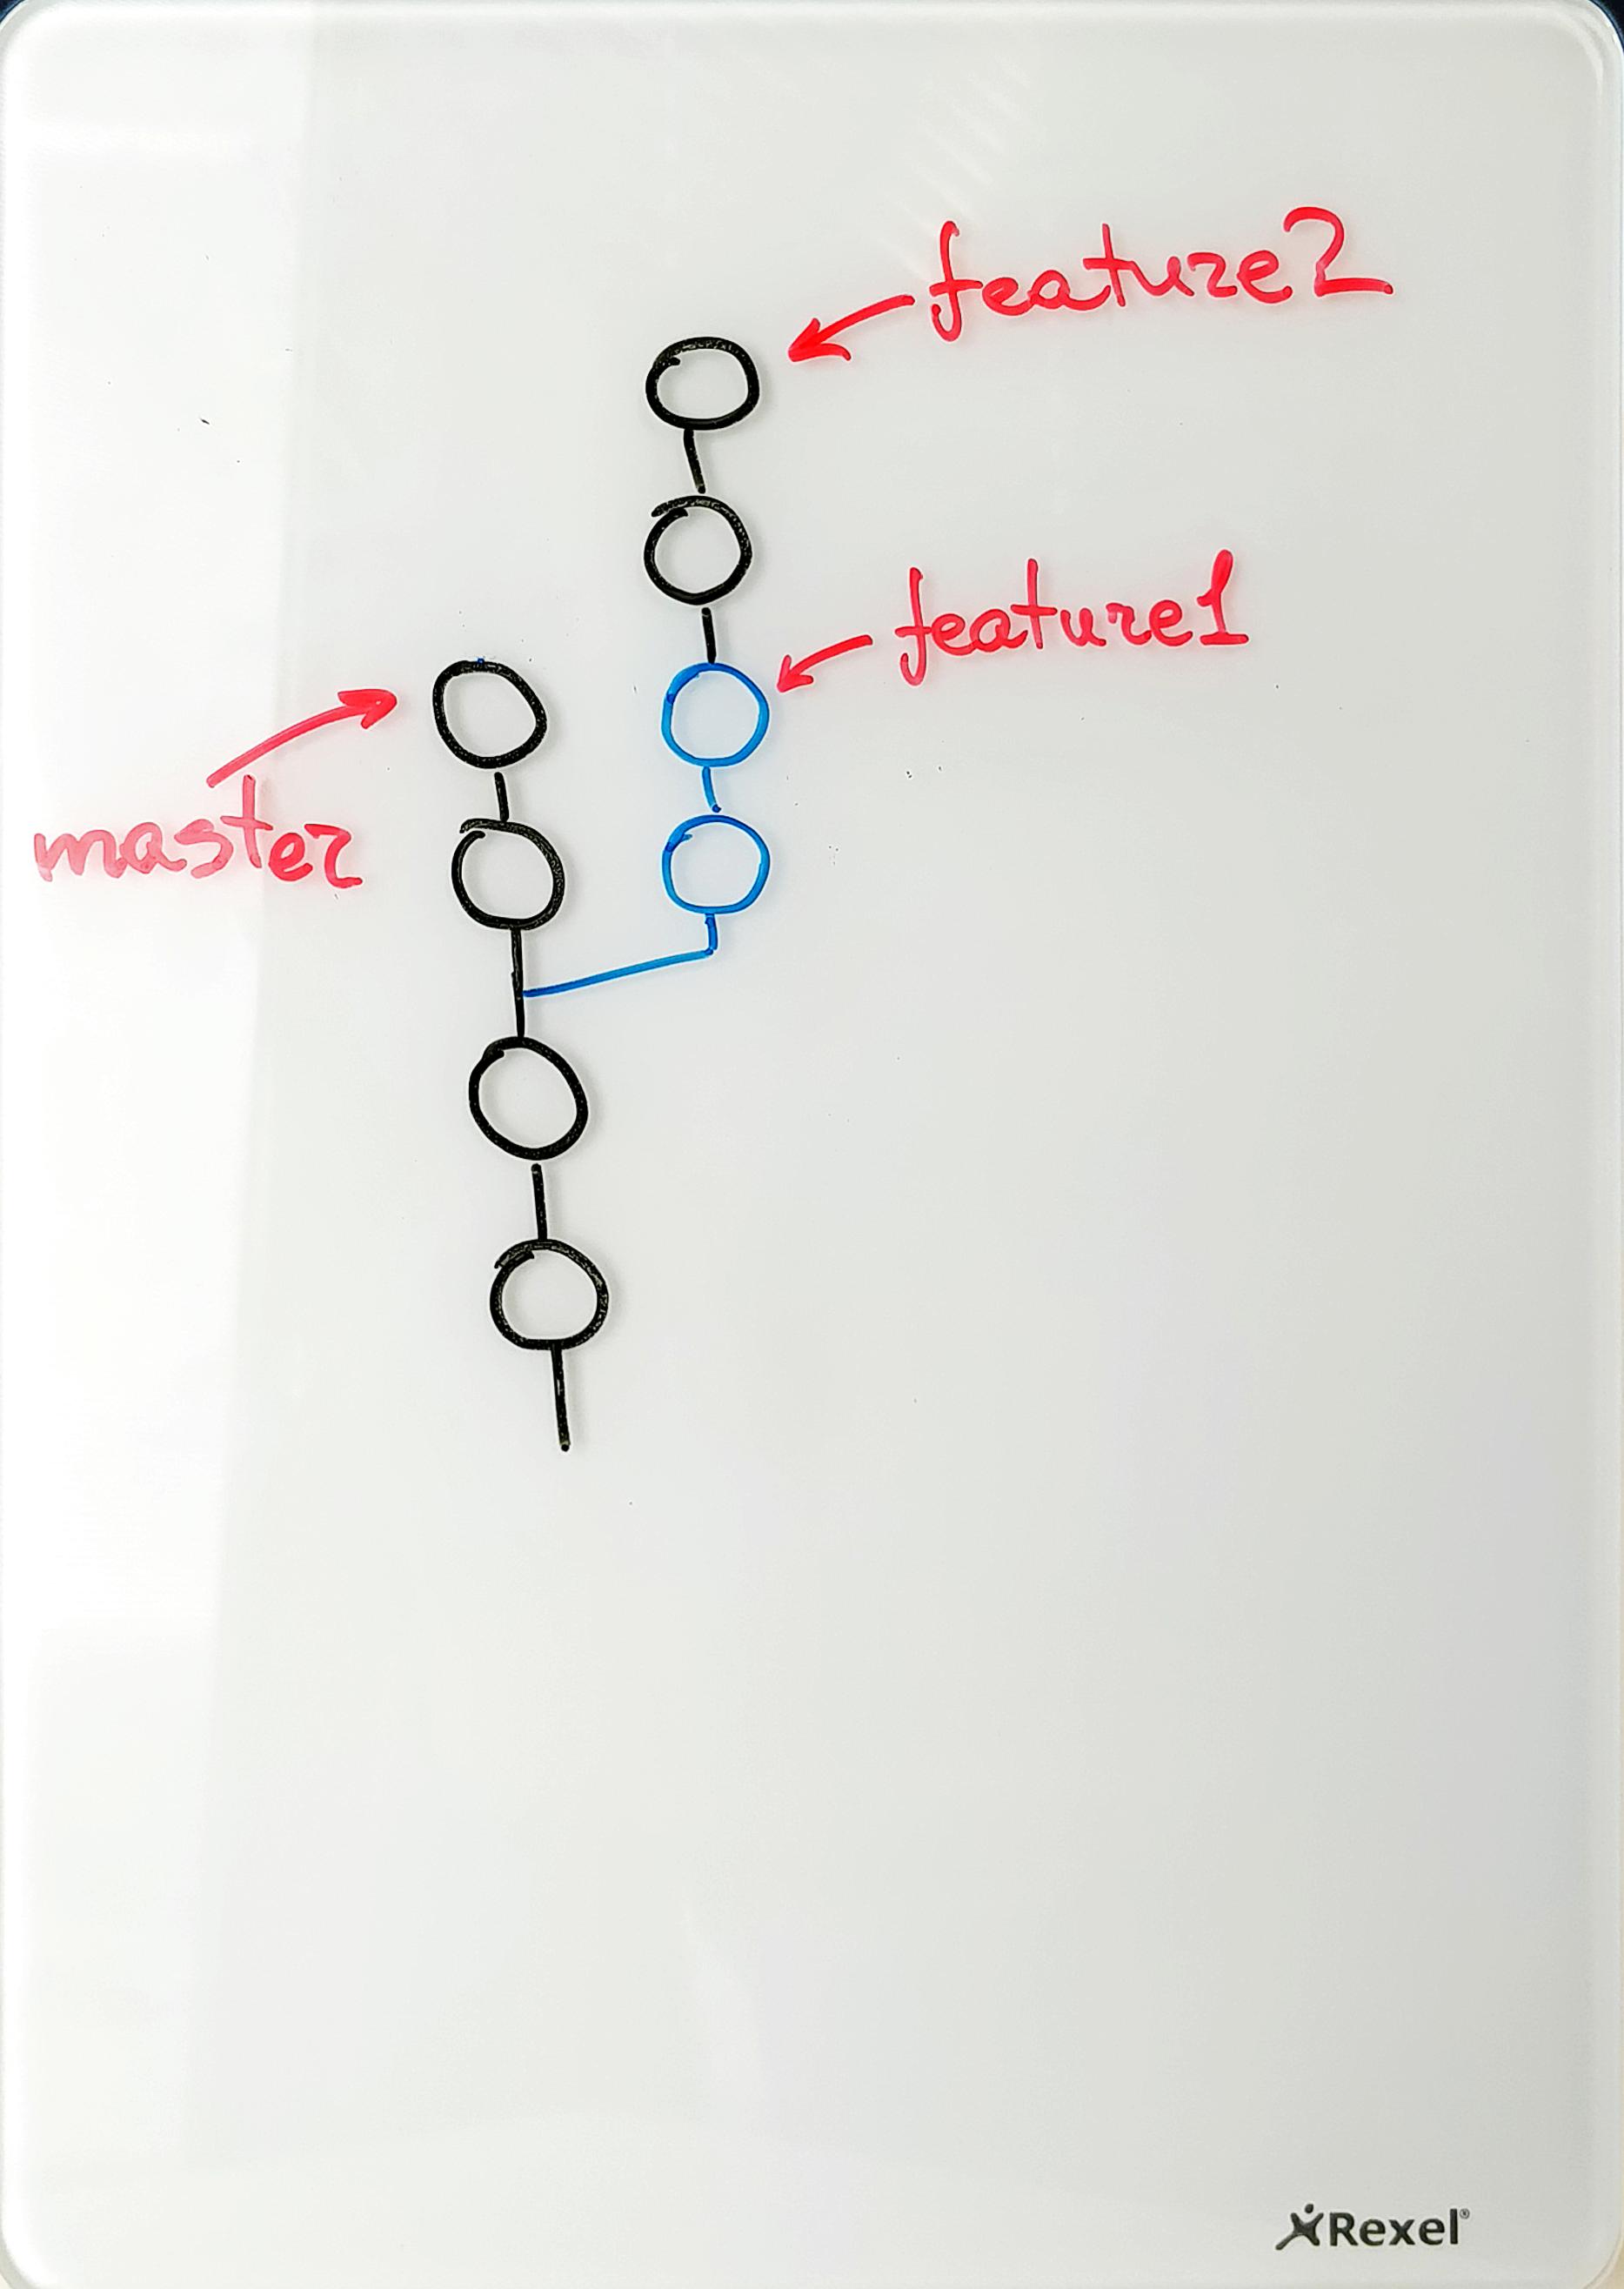 feature2
feature1
master
Rexel®